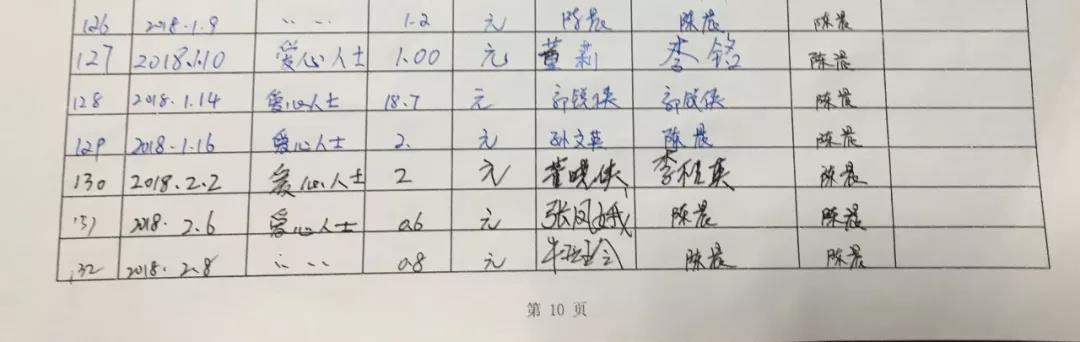 126 2018.1.9 〃 〃 1.2 元 陈晨 陈晨 陈晨
127 2018.1.10 爱心人士 1.00 元 董莉 李铭 陈晨
128 2018.1.14 爱心人士 18.7 元 陈晨
129 2018.1.16 爱心人士 2. 元 孙文英 陈晨 陈晨
130 2018.2.2 爱心人士 2 元 董晓侠 李桂英 陈晨
131 2018.2.6 爱心人士 0.6 元 张凤娥 陈晨 陈晨
132 2018.2.8 〃 〃 0.8 元 陈晨 陈晨
第 10 页